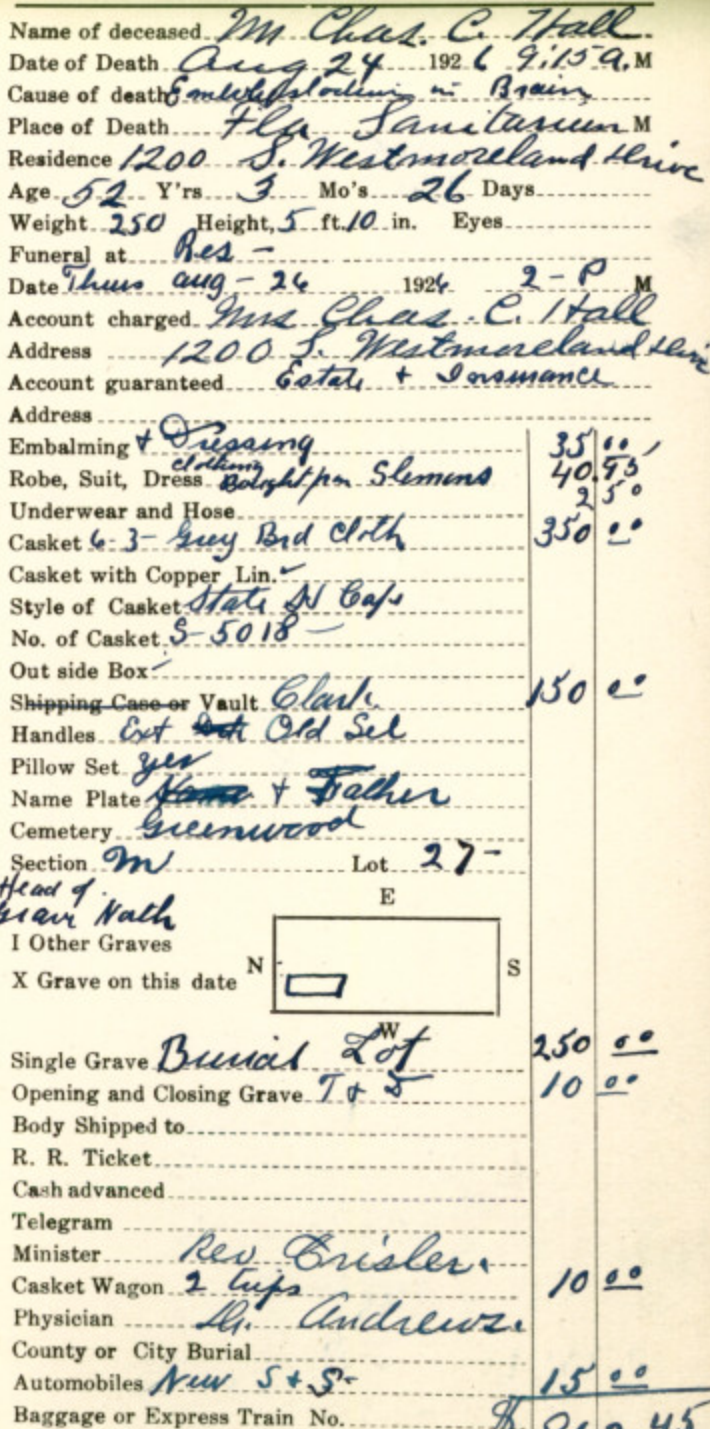 Name of deceased Mr Chas. C. Hall
Date of Death Aug 24 1926 9:15 a. M
Cause of death in Brain
Place of Death Fla Sanitarium M
Residence 1200 S. Westmoreland Drive
Age 52 Y'rs 3 Mo's 26 Days
Weight 250 Height, 5 ft. 10 in. Eyes
Funeral at Res -
Date Thurs Aug - 26 1926 2 - P M
Account charged Mrs Chas. C. Hall
Address 1200 S. Westmoreland Drive
Account guaranteed Estate + Insurance
Address
Embalming + Dressing 35 00
Robe, Suit, Dress clothing Bought from Slemons 40.95
Underwear and Hose 2 50
Casket 6-3- Grey Brd Cloth 350 00
Casket with Copper Lin.
Style of Casket State
No. of Casket S-5018 -
Out side Box
Shipping Case or Vault Clark 150 00
Handles Ext Old Sil
Pillow Set yes
Name Plate + Father
Cemetery Greenwood
Section M Lot 27 -
Head of
Grave North
E
I Other Graves
N S
X Grave on this date
W
Single Grave Burial Lot 250 00
Opening and Closing Grave T & 10 00
Body Shipped to
R. R. Ticket
Cash advanced
Telegram
Minister Rev Crisler.
Casket Wagon 2 trips 10 00
Physician Dr. Andrews.
County or City Burial
Automobiles New S + S - 15 00
Baggage or Express Train No. $ 45